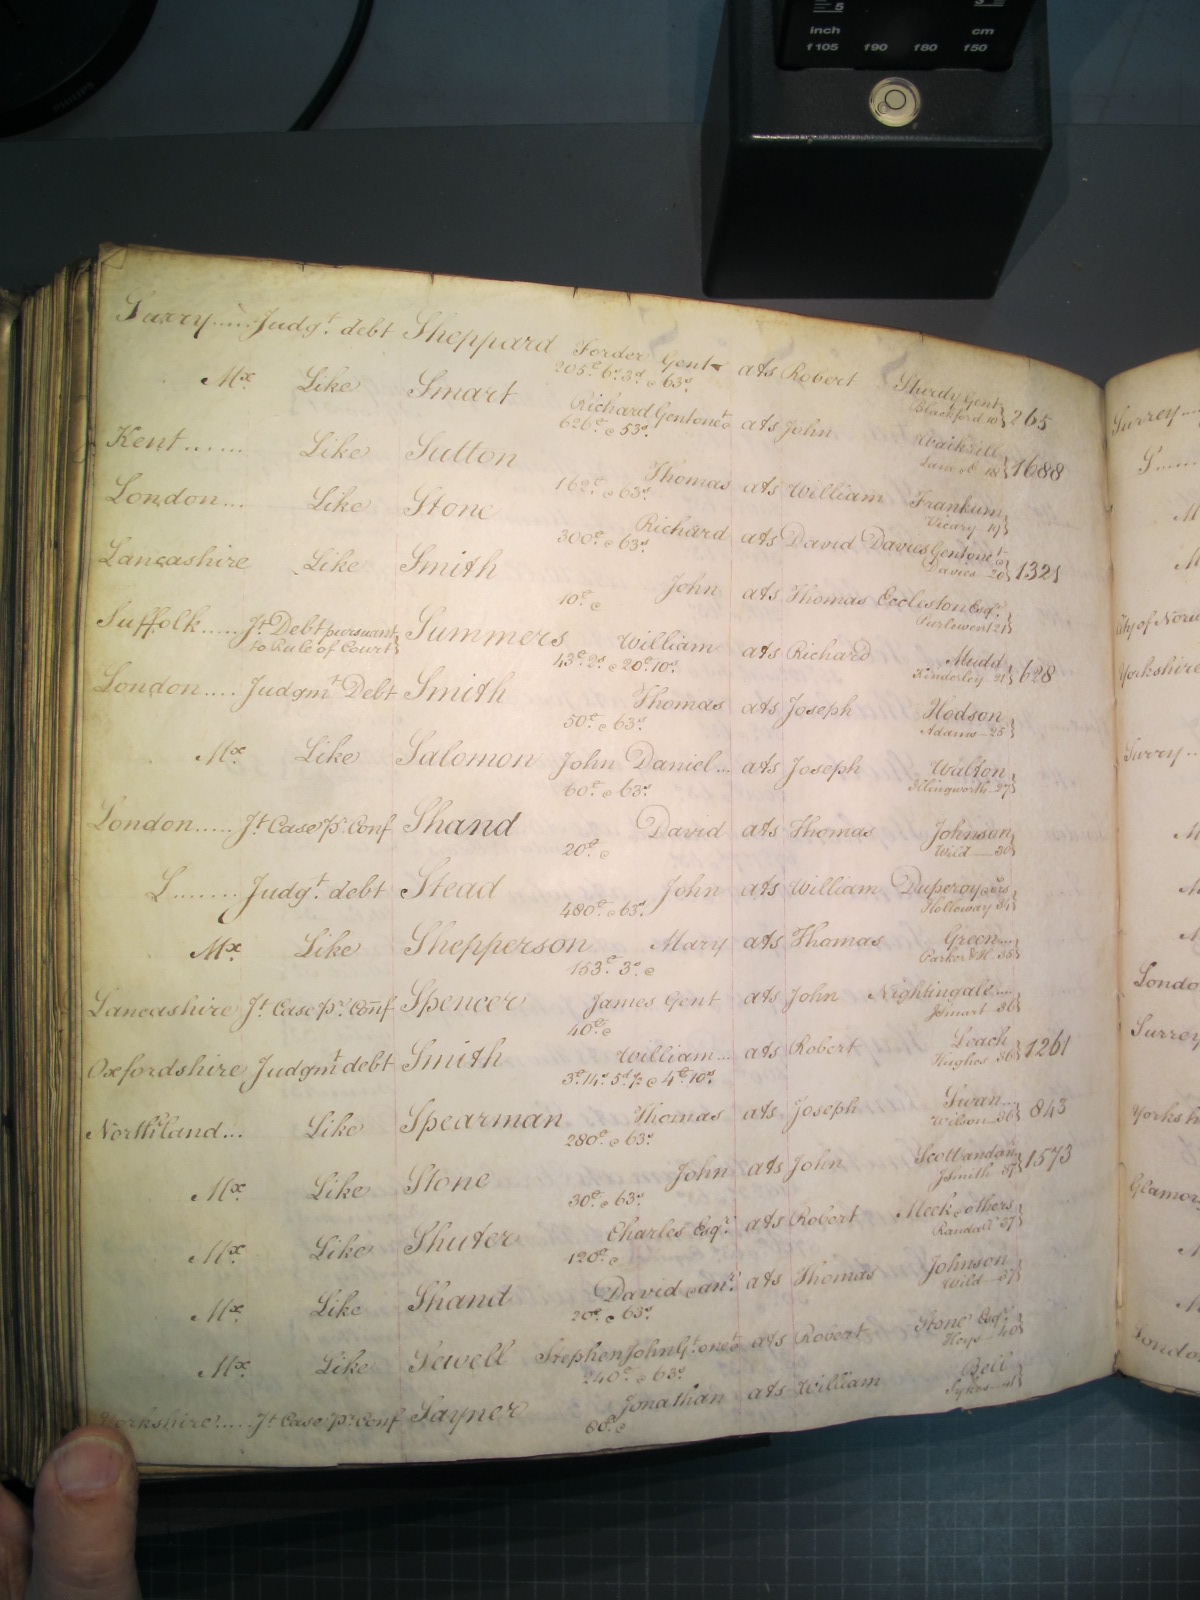 5
inch cm
f105 f90 f80 f50
PHILIPS
Surry..... Judgt. debt Sheppard Forder Gent ats Robert Sturdy Gent 265
205£. 6s. 3d. & 63s. Blackford 10
Mx Like Smart Richard Gent one &c ats John 1688
626£. & 53s. 18
Kent...... Like Sutton Thomas ats William Frankum
162£. & 63s. Vicary 19
London... Like Stone Richard ats David Davies Gent one &c 1321
300£. & 63s. Davies 20
Lancashire Like Smith John ats Thomas Eccleston Esqr.
10£. & Purlewent 21
Suffolk..... Jt. Debt pursuant to Rule of Court Summers William ats Richard Mudd 628
43£. 2s. & 20£. 10s. Kinderley 21
London.... Judgmt Debt Smith Thomas ats Joseph Hodson
50£. & 63s. Adams 25
Mx Like Salomon John Daniel... ats Joseph Walton
60£. & 63s. Illingworth 27
London..... Jt Case pr. Conf Shand David ats Thomas Johnson
20£. & Wild 30
L........ Judgt. debt Stead John ats William Duperoy & ors
480£. & 63s. Holloway 34
Mx. Like Shepperson Mary ats Thomas Green...
153£. 3s. & Parker & H. 35
Lancashire Jt Case pr. Conf Spencer James Gent ats John Nightingale....
40£. & Jsmart 36
Oxfordshire Judgmt debt Smith William... ats Robert Loach 1261
3£. 14s. 5d. ½ & 4£. 10s. Hughes 36
Northland... Like Spearman Thomas ats Joseph Swan... 843
280£. & 63s. Wilson 36
Mx Like Stone John ats John Scott and an 1573
30£. & 63s. JSmith 37
Mx. Like Shuter Charles Esqr. ats Robert Meek & others
120£. & Randall 37
Mx. Like Shand David & anr. ats Thomas Johnson
20£. & 63s. Wild 37
Mx. Like Sewell Stephen John Gt. one &c ats Robert Stone Esqr.
240£. & 63s. Heps 40
Yorkshire..... Jt Case pr. Conf Sayner Jonathan ats William Bell
60£. & Sykes
Surrey
S.....
M
M
City of Norw
Yorkshire
Surry..
M
M
M
Londo
Surrey
Yorksh
Glamor
M
M
Londo